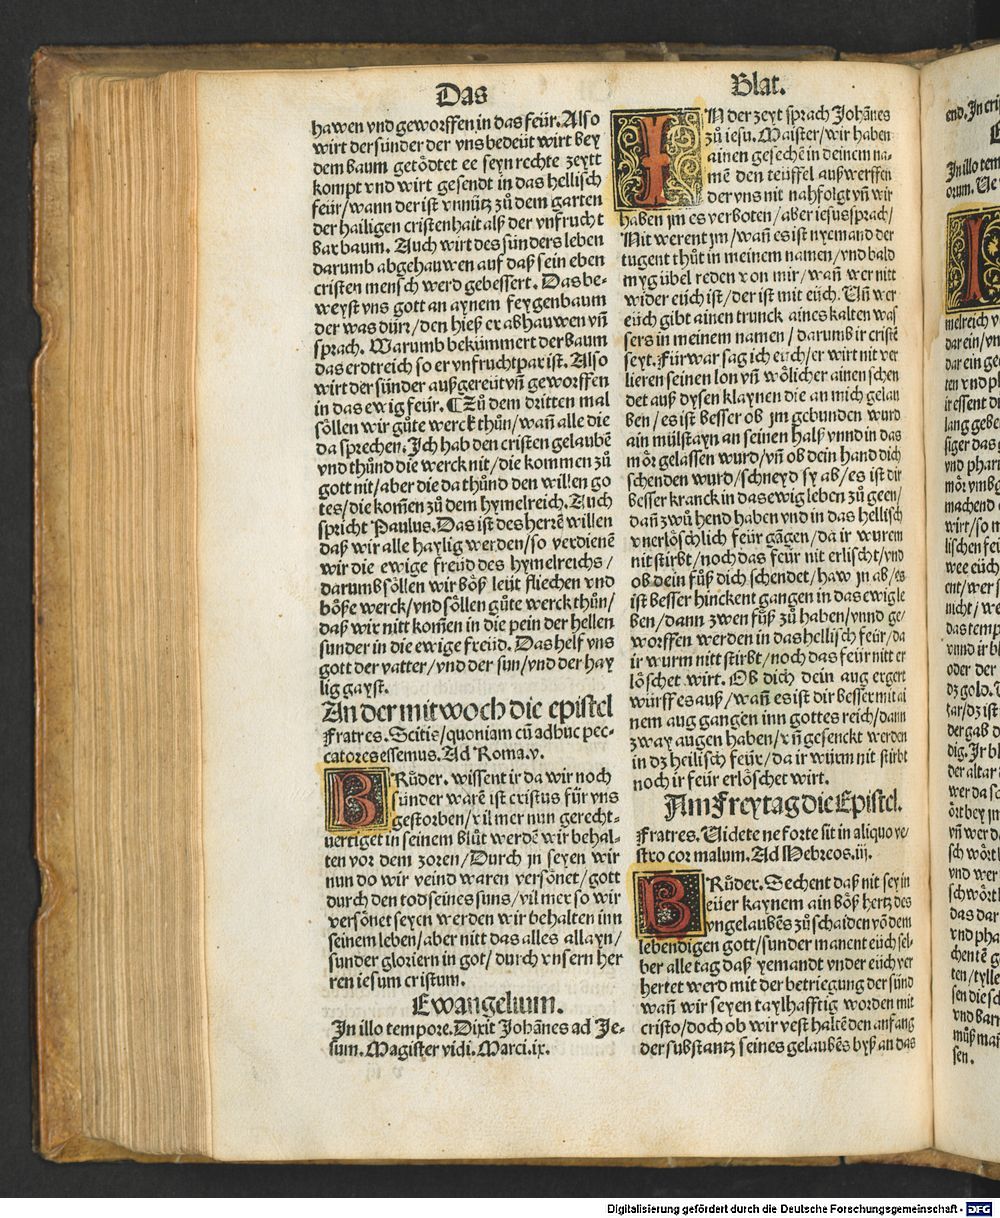 Das
Blat.
hawen vnd geworffen in das feür. Also
wirt der sünder der vns bedeüt wirt bey
dem baum getödtet ee seyn rechte zeytt
kompt vnd wirt gesendt in das hellisch
feür/wann der ist vnnütz zů dem garten
der hailigen cristenhait alß der vnfrucht
bar baum. Auch wirt des sünders leben
darumb abgehauwen auf daß sein eben
cristen mensch werd gebessert. Das be-
weyst vns gott an aynem feygenbaum
der was dürr/den hieß er abhauwen vñ
sprach. Warumb bekümmert der baum
das erdtreich so er vnfruchtpar ist. Also
wirt der sünder außgereüt vñ geworffen
in das ewig feür. ¶Zů dem dritten mal
söllen wir gůte werck thůn/wañ alle die
da sprechen. Ich hab den cristen gelaubẽ
vnd thůnd die werck nit/die kommen zů
gott nit/aber die da thůnd den willen go
tes/die kom̃en zů dem hymelreich. Auch
spricht Paulus. Das ist des herrẽ willen
daß wir alle haylig werden/so verdienẽ
wir die ewige freüd des hymelreichs/
darumb söllen wir böß leüt fliechen vnd
böße werck/vnd söllen gůte werck thůn/
daß wir nitt kom̃en in die pein der hellen
sunder in die ewige freüd. Das helf vns
gott der vatter/vnd der sun/vnd der hay
lig gayst.
An der mitwoch die epistel
Fratres. Scitis/quoniam cũ adhuc pec-
catores essemus. Ad Roma.v.
BRůder. wissent ir da wir noch
sünder warẽ ist cristus für vns
gestorben/vil mer nun gerecht-
uertiget in seinem blůt werdẽ wir behal-
ten vor dem zoren/Durch jn seyen wir
nun do wir veind waren versönet/gott
durch den tod seines suns/vil mer so wir
versönet seyen werden wir behalten inn
seinem leben/aber nitt das alles allayn/
sunder gloriern in got/durch vnsern her
ren iesum cristum.
Ewangelium.
In illo tempore. Dixit Johãnes ad Je-
sum. Magister vidi. Marci.ix.
IN der zeyt sprach Johãnes
zů iesu. Maister/wir haben
ainen gesechẽ in deinem na-
mẽ den teüffel außwerffen
der vns nit nahfolgt vñ wir
haben jm es verboten/aber iesus sprach/
Nit werent jm/wañ es ist nyemand der
tugent thůt in meinem namen/vnd bald
myg übel reden von mir/wañ wer nitt
wider eüch ist/der ist mit eüch. Vñ wer
eüch gibt ainen trunck aines kalten was
sers in meinem namen/darumb ir cristẽ
seyt. Fürwar sag ich euch/er wirt nit ver
lieren seinen lon vñ wölicher ainen schen
det auß dysen klaynen die an mich gelau
ben/es ist besser ob jm gebunden wurd
ain mülstayn an seinen halß vnnd in das
mör gelassen wurd/vñ ob dein hand dich
schenden wurd/schneyd sy ab/es ist dir
besser kranck in das ewig leben zů geen/
dañ zwů hend haben vnd in das hellisch
vnerlöschlich feür gãgen/da ir wurem
nit stirbt/noch das feür nit erlischt/vnd
ob dein fůß dich schendet/haw jn ab/es
ist besser hinckent gangen in das ewig le
ben/dann zwen fůß zů haben/vnnd ge-
worffen werden in das hellisch feür/da
ir wurm nitt stirbt/noch das feür nitt er
löschet wirt. Ob dich dein aug ergert
würff es auß/wañ es ist dir besser mit ai
nem aug gangen inn gottes reich/dann
zway augen haben/vñ gesenckt werden
in dz hellisch feür/da ir würm nit stirbt
noch ir feür erlöschet wirt.
Am Freytag die Epistel.
Fratres. Videte ne forte sit in aliquo ve-
stro cor malum. Ad Hebreos.iij.
BRůder. Sechent daß nit sey in
eüer kaynem ain böß hertz des
vngelaubẽs zů schaiden võ dem
lebendigen gott/sunder manent eüch sel-
ber alle tag daß yemandt vnder eüch ver
hertet werd mit der betriegung der sünd
wañ wir seyen taylhafftig worden mit
cristo/doch ob wir vest haltẽ den anfang
der substantz seines gelaubẽs byß an das
Digitalisierung gefördert durch die Deutsche Forschungsgemeinschaft - DFG